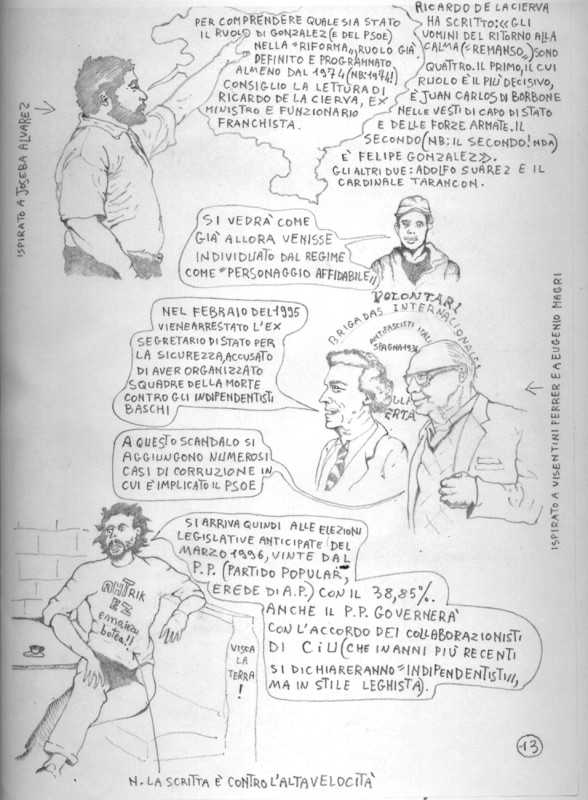 PER COMPRENDERE QUALE SIA STATO
IL RUOLO DI GONZALEZ (E DEL PSOE)
NELLA "RIFORMA", RUOLO GIÀ
DEFINITO E PROGRAMMATO
ALMENO DAL 1974 (NB:1974!)
CONSIGLIO LA LETTURA DI
RICARDO DE LA CIERVA, EX
MINISTRO E FUNZIONARIO
FRANCHISTA.
RICARDO DE LA CIERVA
HA SCRITTO: «GLI
UOMINI DEL RITORNO ALLA
CALMA ("REMANSO") SONO
QUATTRO. IL PRIMO, IL CUI
RUOLO È IL PIÙ DECISIVO,
È JUAN CARLOS DI BORBONE
NELLE VESTI DI CAPO DI STATO
E DELLE FORZE ARMATE. IL
SECONDO (NB: IL SECONDO! NDA)
È FELIPE GONZALEZ».
GLI ALTRI DUE: ADOLFO SUAREZ E IL
CARDINALE TARANCON.
ISPIRATO A JOSEBA ALVAREZ
SI VEDRÀ COME
GIÀ ALLORA VENISSE
INDIVIDUATO DAL REGIME
COME "PERSONAGGIO AFFIDABILE"
NEL FEBRAIO DEL 1995
VIENE ARRESTATO L'EX
SEGRETARIO DI STATO PER
LA SICUREZZA, ACCUSATO
DI AVER ORGANIZZATO
SQUADRE DELLA MORTE
CONTRO GLI INDIPENDENTISTI
BASCHI
VOLONTARI
BRIGADAS INTERNACIONALES
ANTIFASCISTI ITALI
SPAGNA 1936
LLA
ERTÀ
ISPIRATO A VISENTINI FERRER E A EUGENIO MAGRI
A QUESTO SCANDALO SI
AGGIUNGONO NUMEROSI
CASI DI CORRUZIONE IN
CUI È IMPLICATO IL PSOE
SI ARRIVA QUINDI ALLE ELEZIONI
LEGISLATIVE ANTICIPATE DEL
MARZO 1996, VINTE DAL
P.P. (PARTIDO POPULAR,
EREDE DI A.P.) CON IL 38,85%.
ANCHE IL P.P. GOVERNERÀ
CON L'ACCORDO DEI COLLABORAZIONISTI
DI CiU (CHE IN ANNI PIÙ RECENTI
SI DICHIARERANNO "INDIPENDENTISTI",
MA IN STILE LEGHISTA).
AHTRIK
EZ
emaiezu
botea!!
VISCA
LA
TERRA
!
13
N. LA SCRITTA È CONTRO L'ALTA VELOCITÀ